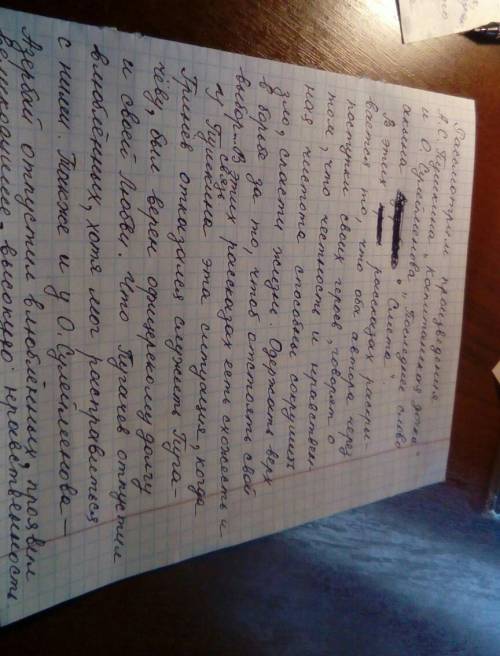 Рассмотрим произведения
А.С. Пушкина "Капитанская дочка"
и О. Сулейменова "Последнее слово
акына Смета".
В этих рассказах раскры-
вается то, что оба автора через
поступки своих героев, говорят о
том, что честность и нравствен-
ная чистота способны сокрушить
зло, спасти жизнь. Одержать верх
в борьбе за то, чтоб отстоять свой
выбор. В этих рассказах есть схожесть и
у Пушкина эта ситуация, когда
Гринев отказался служить Пуга-
чёву, был верен офицерскому долгу
и своей Любви. Что Пугачев отпустил
влюблённых, хотя мог расправиться
с ними. Также и у О. Сулейменова –
Азербай отпустил влюблённых, проявил
великодушие – высокую нравственность